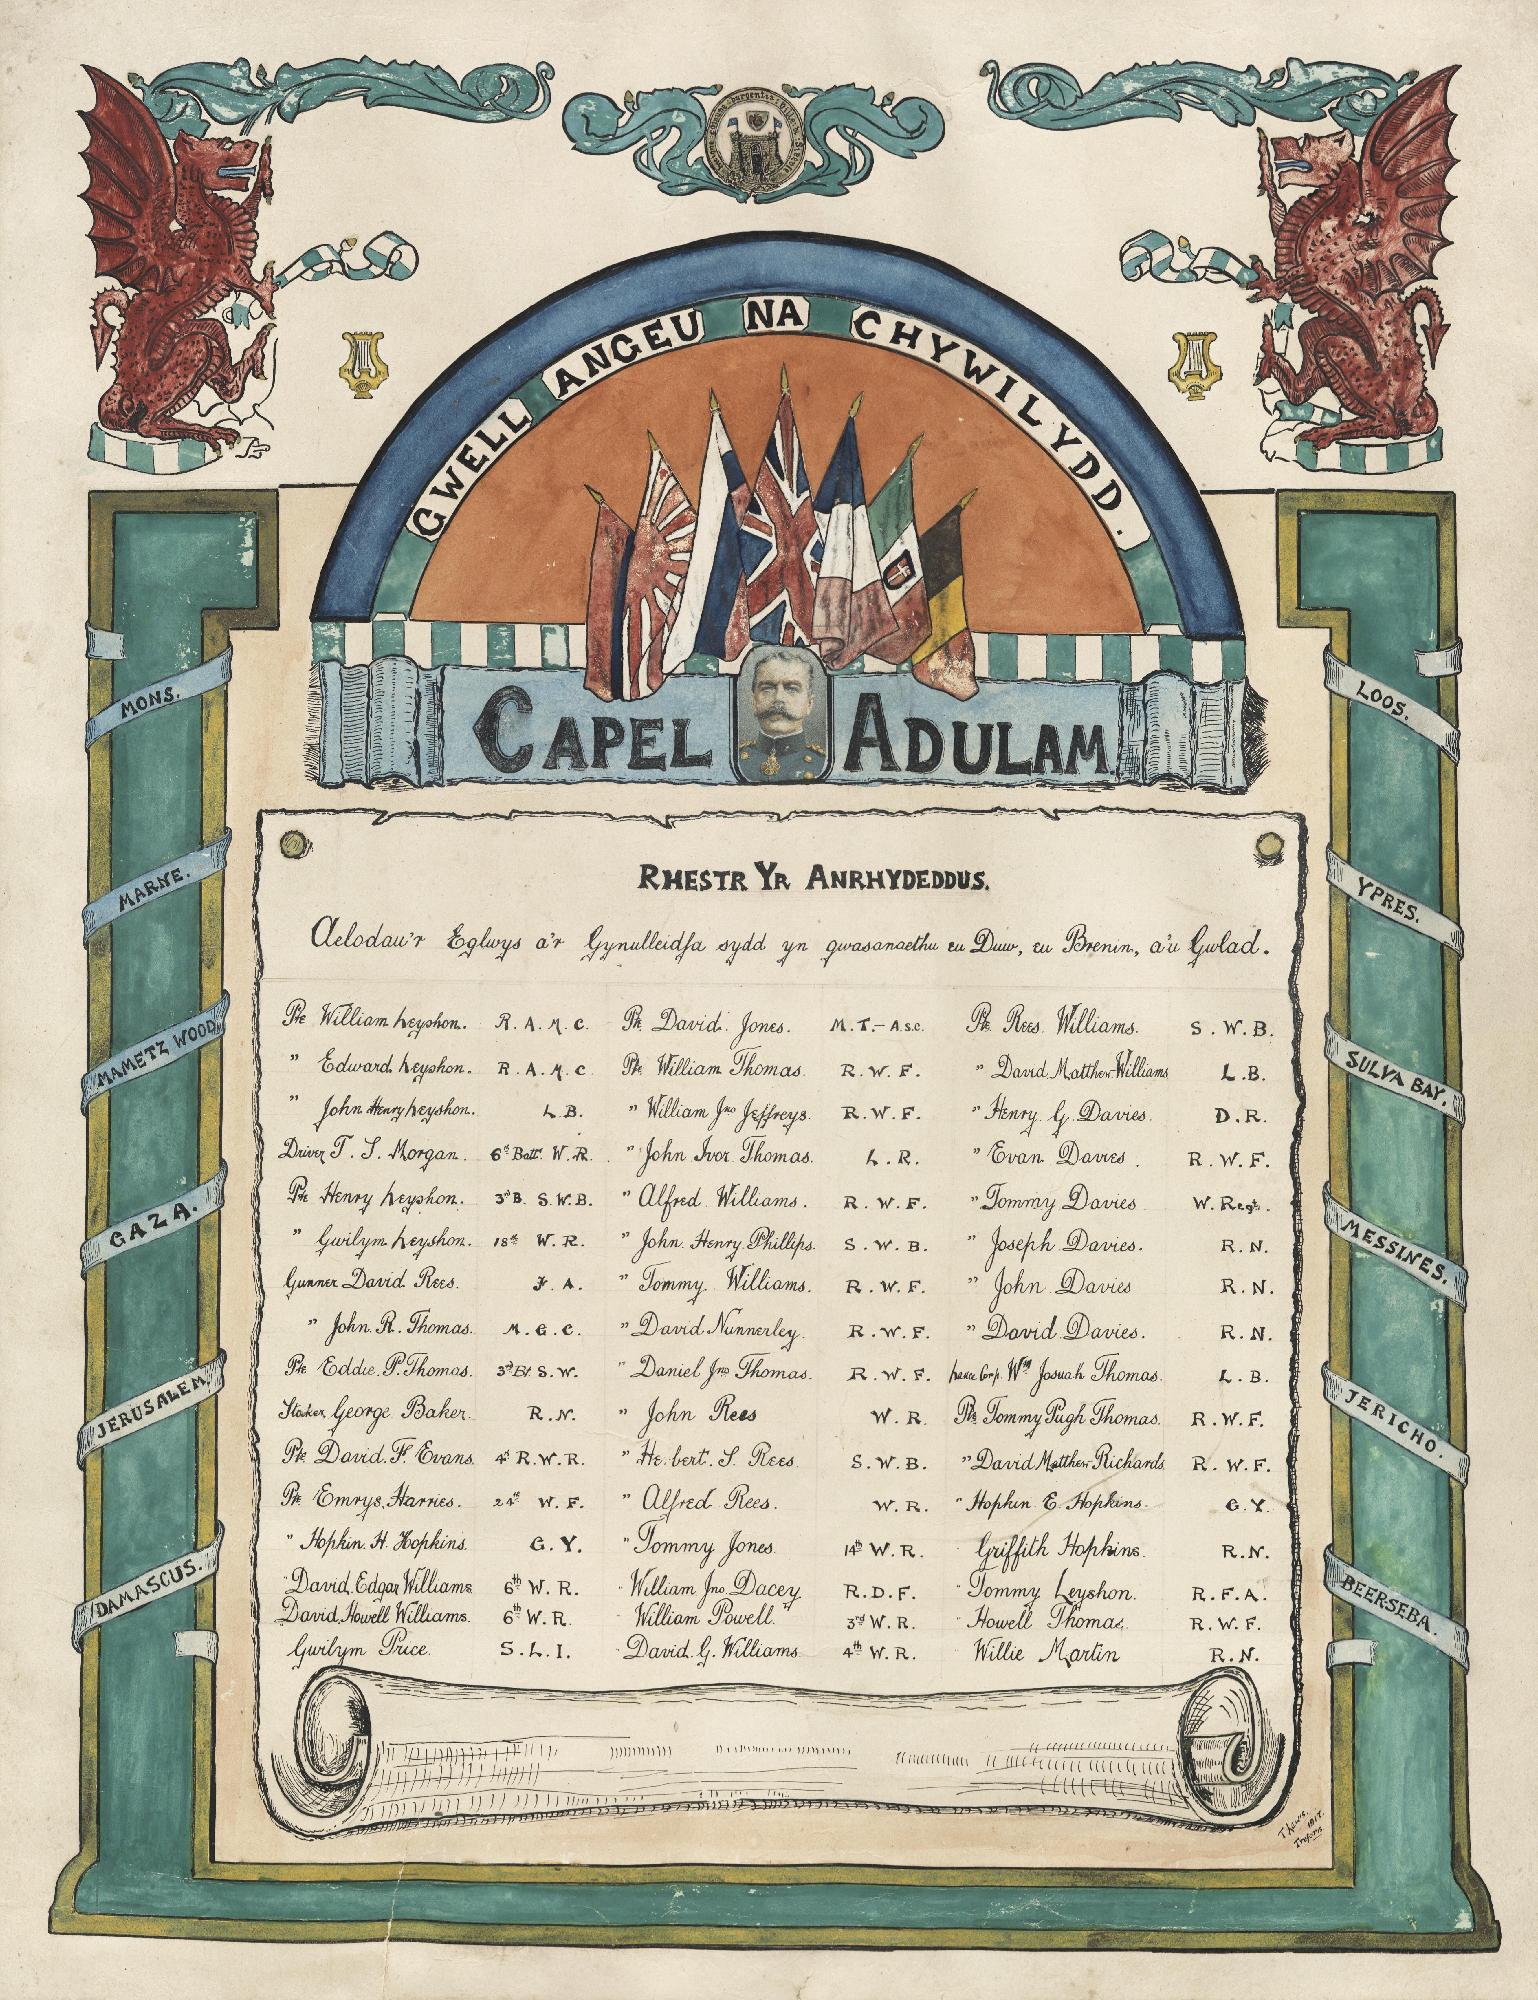 GWELL ANGEU NA CHYWILYDD.
CAPEL ADULAM
MONS.
MARNE.
MAMETZ WOOD
GAZA.
JERUSALEM
DAMASCUS.
LOOS.
YPRES.
SULVA BAY.
MESSINES.
JERICHO.
BEERSEBA.
RHESTR YR ANRHYDEDDUS.
Aelodau'r Eglwys a'r Gynulleidfa sydd yn gwasanaethu eu Duw, eu Brenin, a'u Gwlad.
Pte William Leyshon. R.A.M.C. Pte. David Jones. M.T.-A.S.C. Pte. Rees Williams. S.W.B.
" Edward Leyshon. R.A.M.C Pte William Thomas. R.W.F. " David Matthew Williams L.B.
" John Henry Leyshon. L.B. " William Jno Jeffreys. R.W.F. " Henry G. Davies. D.R.
Driver T. S. Morgan. 6th Batt. W.R. " John Ivor Thomas. L.R. " Evan Davies. R.W.F.
Pte Henry Leyshon. 3rd B. S.W.B. " Alfred Williams. R.W.F. " Tommy Davies W. Regt.
" Gwilym Leyshon. 18th W.R. " John Henry Phillips. S.W.B. " Joseph Davies. R.N.
Gunner David Rees. F.A. " Tommy Williams. R.W.F. " John Davies R.N.
" John R. Thomas. M.G.C. " David Nunnerley. R.W.F. " David Davies. R.N.
Pte Eddie P. Thomas. 3rd Bt. S.W. " Daniel Jno Thomas. R.W.F. Lance Corp. Wm Josuah Thomas. L.B.
Stoker George Baker. R.N. " John Rees W.R. Pte Tommy Pugh Thomas. R.W.F.
Pte David F. Evans. 4th R.W.R. " Herbert. S. Rees. S.W.B. " David Matthew Richards. R.W.F.
Pte Emrys Harries. 24th W.F. " Alfred Rees. W.R. " Hopkin E. Hopkins. G.Y.
" Hopkin H. Hopkins. G.Y. " Tommy Jones. 14th W.R. Griffith Hopkins. R.N.
David Edgar Williams 6th W.R. William Jno. Dacey R.D.F. Tommy Leyshon. R.F.A.
David Howell Williams. 6th W.R. William Powell. 3rd W.R. Howell Thomas. R.W.F.
Gwilym Price. S.L.I. David G. Williams. 4th W.R. Willie Martin R.N.
1917.